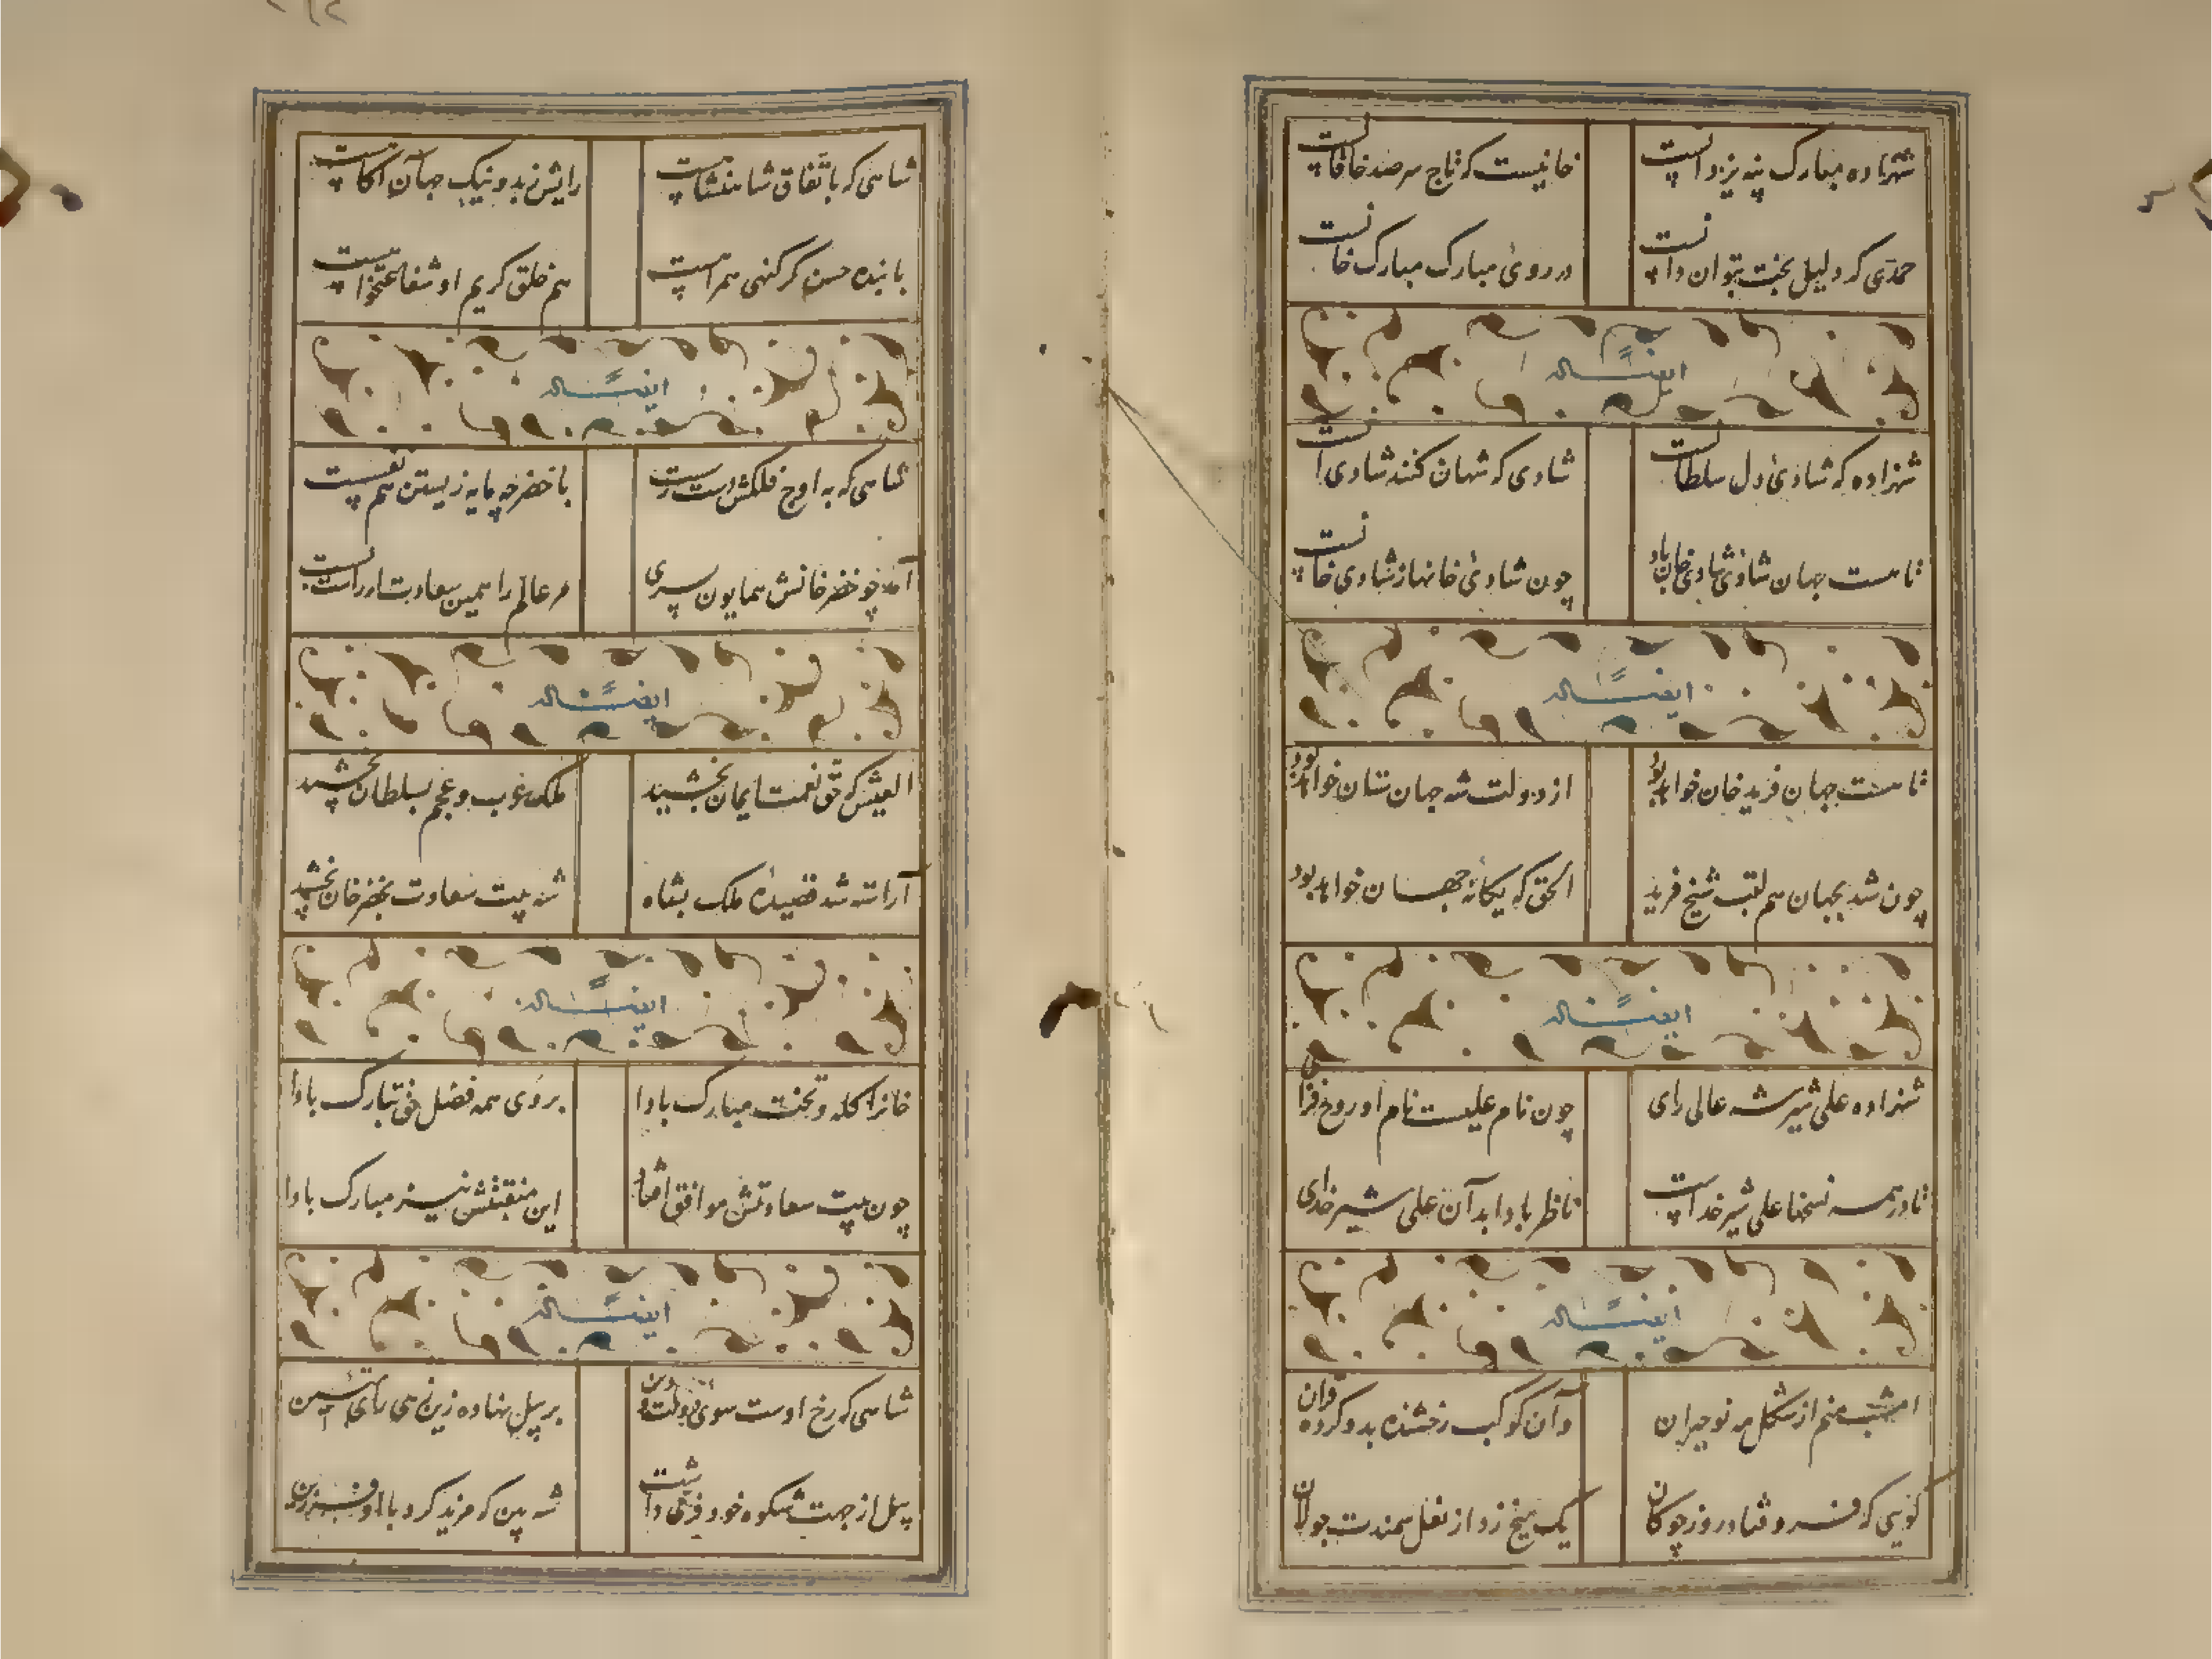 شهزاده مبارک پنه یزدانست
خانیست که تاج سر صد خاقانست
حمدی که دلیل بخت بتوان دانست
در روئ مبارک مبارک خانست
ایضاً له
شهزاده که شادئ دل سلطانست
شادی که شهان کنند شادی آنست
تا هست جهان شادئ شادی خان باد
چون شادئ خانها ز شادی خانست
ایضاً له
تا هست جهان فرید خان خواهد بود
از دولت شه جهان ستان خواهد بود
چون شد بجهان هم لقب شیخ فرید
الحق که یگانهٔ جهان خواهد بود
ایضاً له
شهزاده علی شیر شه عالی رای
چون نام علیست نام او روح فزای
نادر همه نسخها علی شیر خداست
ناظر بادا بدآن علی شیر خدای
ایضاً له
امشب منم از شکل مه نو حیران
وآن کوکب رخشنده بدو کرده قران
گویی که فرو فتاد روز چوگان
یک میخ زر از نعل سمندت جولان
شاهی که باتفاق شاهنشاهست
رایش ز بد و نیک جهان آکاهست
با بنده حسن گر گنهی همراهست
هم خلق کریم او شفاعتخواهست
ایضاً له
شاهی که به اوج فلکش دست رسست
با خضر چه مایه زیستن هم نفسست
آمد چو خضر خانش همایون پسری
مر عالم را همین سعادت
ایضاً له
العیش که حق نعمت ایمان بخشید
ملک عرب و عجم بسلطان بخشید
آراسته شد قصیدهٔ ملک بشاه
شه بیت سعادت بخضر خان بخشید
ایضاً له
خانرا کله و تخت مبارک بادا
بروی همه فضل حق تبارک بادا
چون بیت سعادتش موافق افتاد
این منقبتش نیز مبارک بادا
ایضاً له
شاهی که رخ اوست سوی دولت و دین
بر پیل نهاده زین همی رای
پیل از جهت شکوه خود فرقی داشت
شه بین که مزید کرد با او فرزین